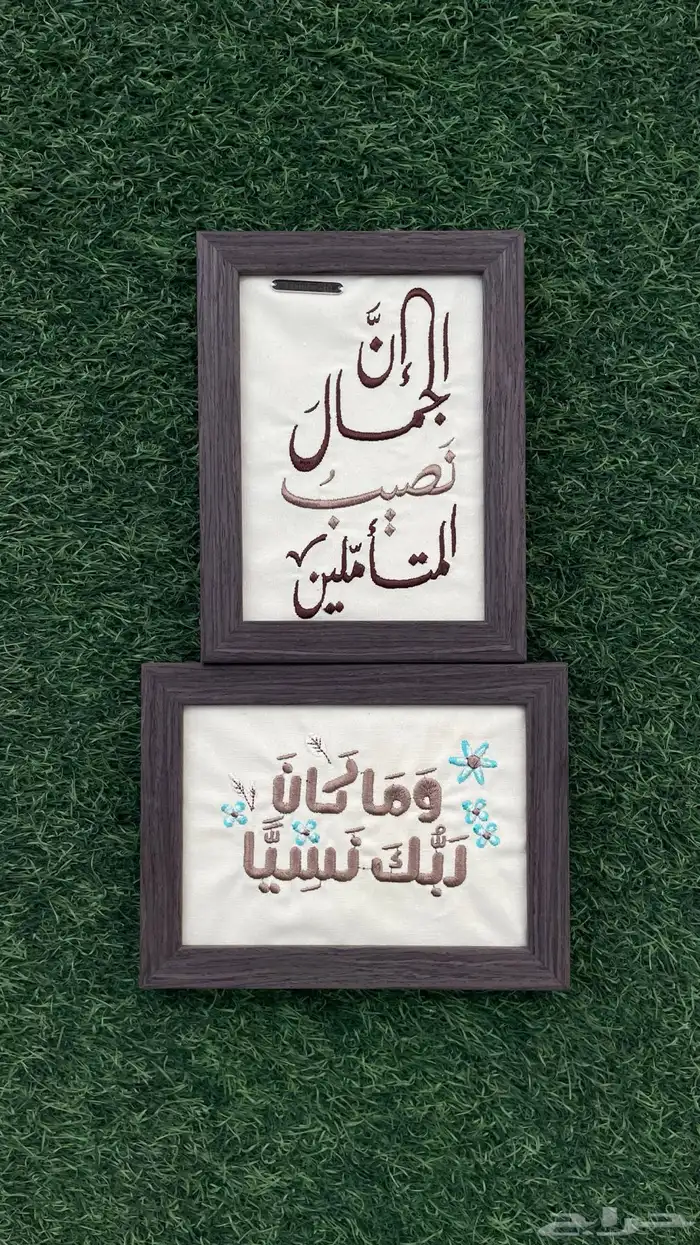 إنَّ
الجمالَ
نَصيبُ
المتأمّلين
وَمَا كَانَ
رَبُّكَ نَسِيًّا
حراج